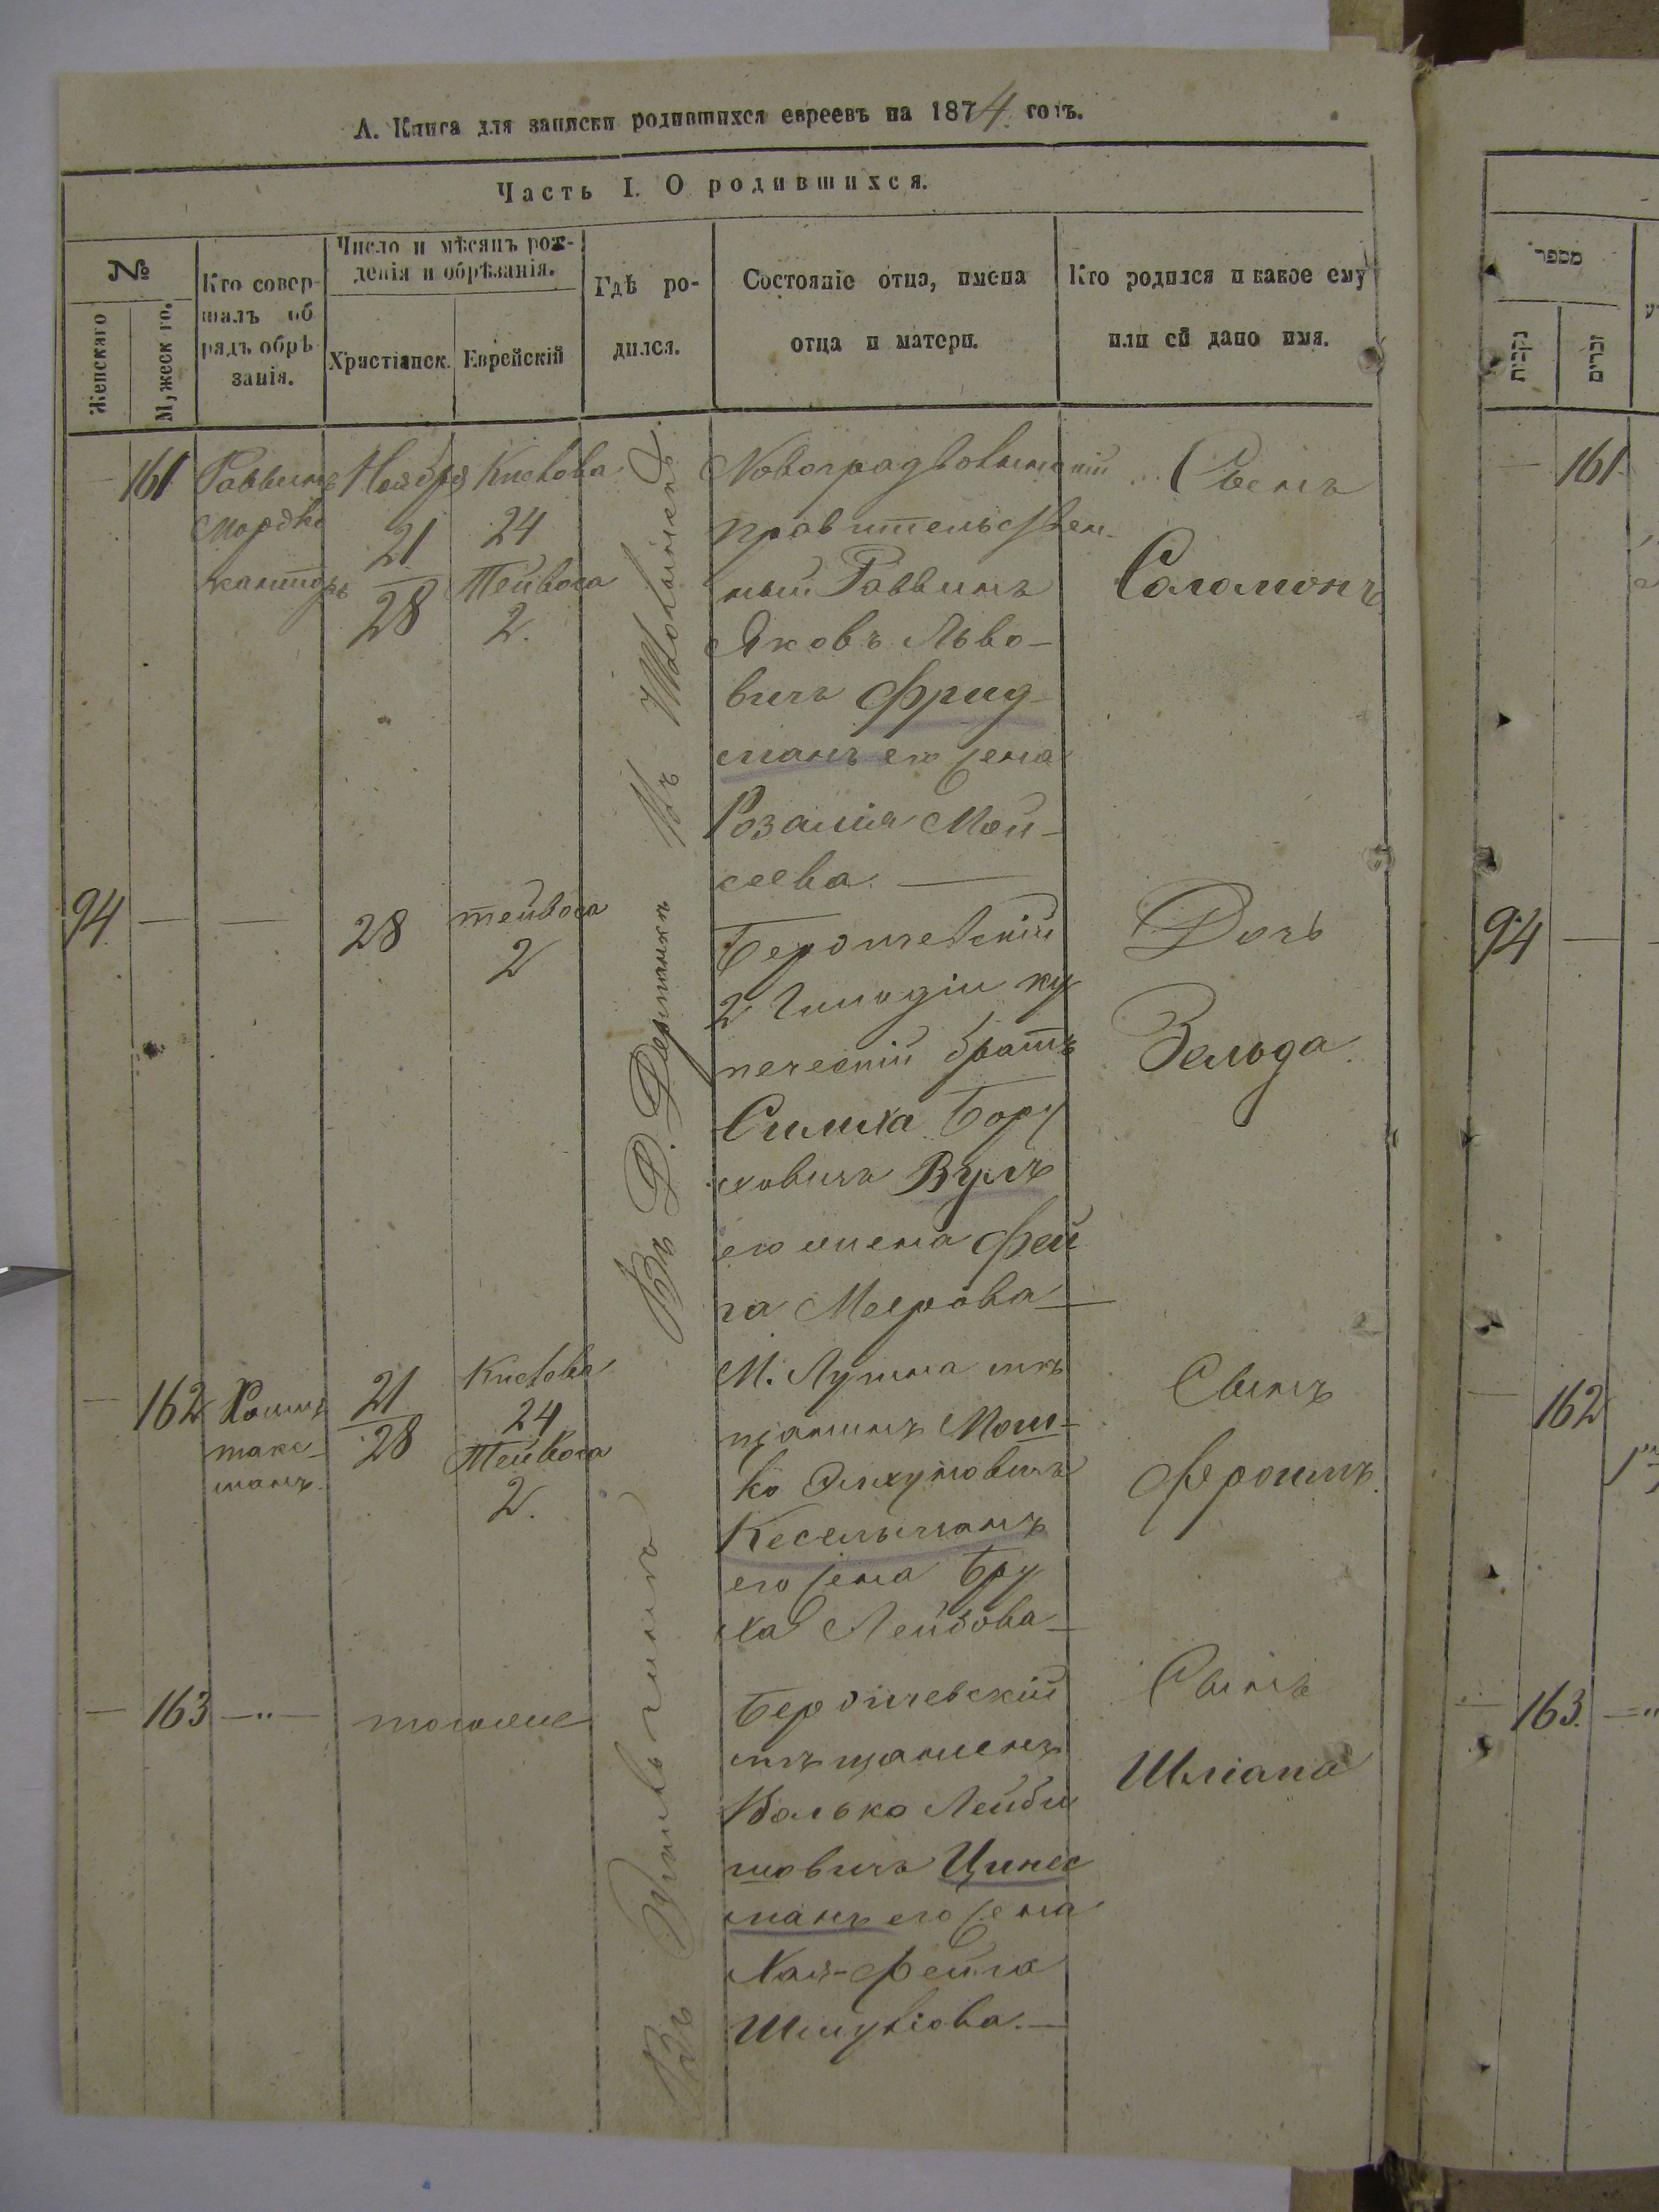 А. Книга для записки родившихся евреевъ на 1874 годъ.
Часть I. О родившихся.
№
Женскаго
Мужескаго.
Кто совер-
шалъ об
рядъ обрѣ
занія.
Число и мѣсяцъ рож-
денія и обрѣзанія.
Христіанск.
Еврейскій
Гдѣ ро-
дился.
Состояніе отца, имена
отца и матери.
Кто родился и какое ему
или ей дано имя.
161
Раввинъ
Мордко
канторъ
Ноября
21
28
Кислова
24
Тейвоса
2.
Новоградволынскій
правительствен-
ный Раввинъ
Яковъ Льво-
вичъ Фрид-
манъ его жена
Розалія Мои-
сеева. —
Сынъ
Саломонъ
94
—
—
28
тейвоса
2
Бердичевскій
2 Гильдіи ку
печескій братъ
Симха Бору
ховичъ Вулъ
его жена Фей
га Меерова —
Дочь
Зельда.
— 162
21
28
Кислова
24
Тейвоса
2.
М. Лушна мѣ
щанинъ Мош-
ко
Кесельманъ
его жена Бру
ха Лейзова —
Сынъ
Фроимъ.
— 163
—"—
тогоже
Бердичевскій
мѣщанинъ
Волько Лейби
шовичъ Цинес
манъ его жена
Хая-Фейга
Шмулiова. —
Сынъ
Шліома
Въ
מספר
נקבות
זכרים
— 161.
94 —
— 162
— 163. —"